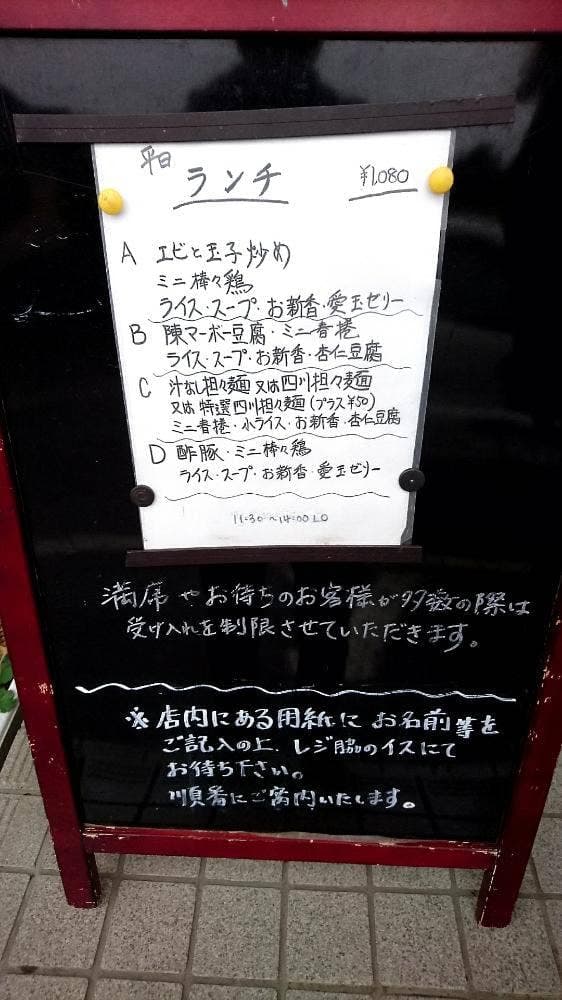 平日
ランチ ¥1,080
A エビと玉子炒め
ミニ棒々鶏
ライス・スープ・お新香・愛玉ゼリー
B 陳マーボー豆腐・ミニ春捲
ライス・スープ・お新香・杏仁豆腐
C 汁なし担々麺 又は四川担々麺
又は 特選四川担々麺(プラス¥50)
ミニ春捲・小ライス・お新香・杏仁豆腐
D 酢豚・ミニ棒々鶏
ライス・スープ・お新香・愛玉ゼリー
11:30〜14:00 LO
満席やお待ちのお客様が多数の際は
受け入れを制限させていただきます。
※店内にある用紙にお名前等を
ご記入の上、レジ脇のイスにて
お待ち下さい。
順番にご案内いたします。